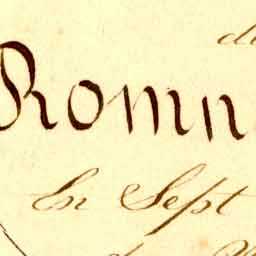 Romn
En Sept